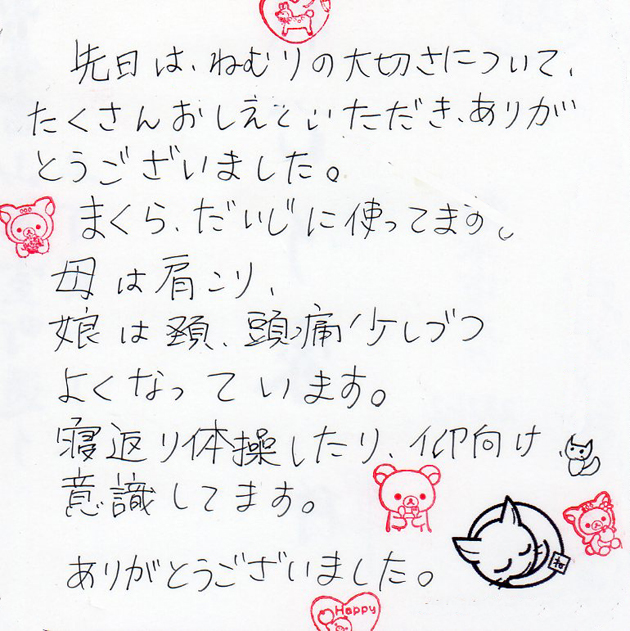 先日は、ねむりの大切さについて、
たくさんおしえといただき、ありが
とうございました。
まくら、だいじに使ってます。
母は肩こり、
娘は頚、頭痛少しづつ
よくなっています。
寝返り体操したり、仰向け
意識してます。
ね
ありがとうございました。
Happy